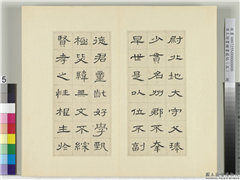 尉北地大守父琫
少貫名州郡不幸
早世是以位不副
德君童齔好學甄
極毖緯無文不綜
賢孝之性根生於
5